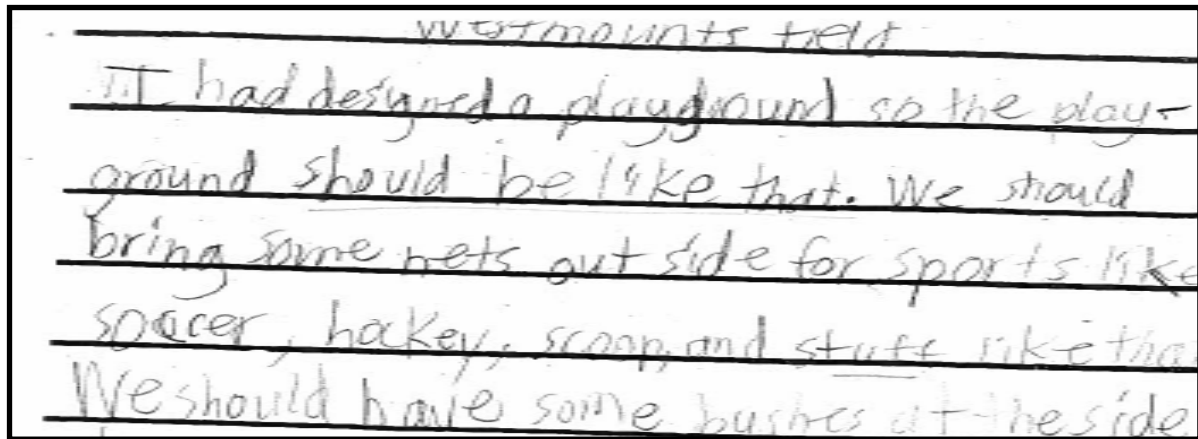 Westmounts field
I had designed a playground so the play-
ground should be like that. We should
bring some nets out side for sports like
soccer, hockey, scoop, and stuff like tha
We should have some bushes at the side